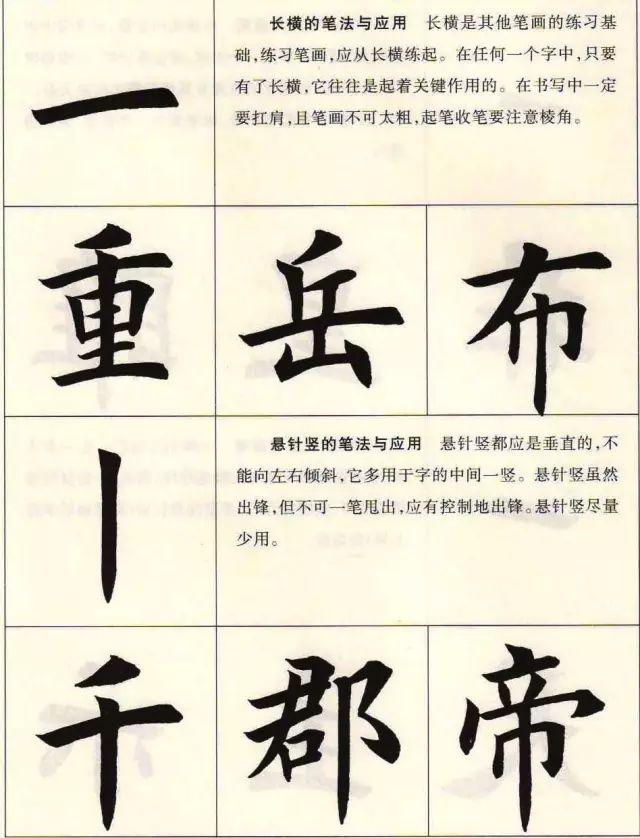 一
长横的笔法与应用 长横是其他笔画的练习基
础,练习笔画,应从长横练起。在任何一个字中,只要
有了长横,它往往是起着关键作用的。在书写中一定
要扛肩,且笔画不可太粗,起笔收笔要注意棱角。
重 岳 布
丨
悬针竖的笔法与应用 悬针竖都应是垂直的,不
能向左右倾斜,它多用于字的中间一竖。悬针竖虽然
出锋,但不可一笔甩出,应有控制地出锋。悬针竖尽量
少用。
千 郡 帝